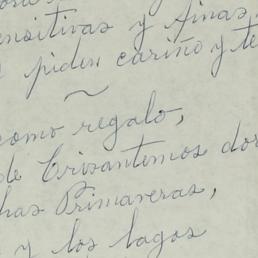 ensitivas y finas
piden cariño y te
como regalo,
de Crisantemos dor
has Primaveras,
y los lagos